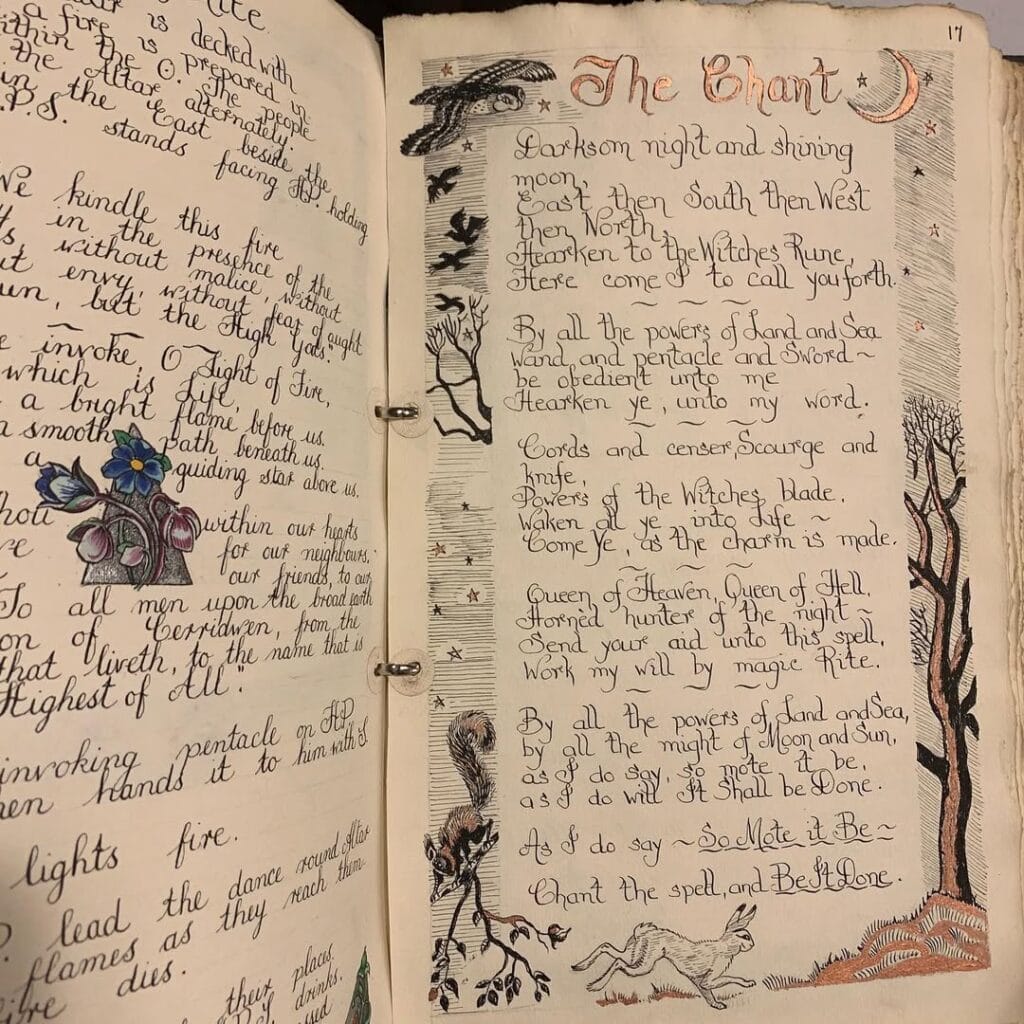 is decked with
a fire is prepared in
within the O. The people
the Altar alternately:
in the East beside the
P.S. stands facing H.P. holding
We kindle this fire
in the presence of the
without malice, without
envy, without fear of aught
but the High Gods."
invoke, O Light of Fire,
which is Life,
a bright flame before us.
a smooth path beneath us.
a guiding star above us.
within our hearts
for our neighbours,
our friends, to our
To all men upon the broad earth
of Cerridwen, from the
that liveth, to the name that is
Highest of All".
invoking pentacle on H.P.
hands it to him with S.
lights fire.
lead the dance round Altar
flames as they reach them
dies.
their places.
drinks.
17
The Chant
Darksom night and shining
moon,
East then South then West
then North,
Hearken to the Witches Rune,
Here come I to call you forth.
By all the powers of Land and Sea
Wand and pentacle and Sword ~
be obedient unto me
Hearken ye, unto my word.
Cords and censer, Scourge and
knife,
Powers of the Witches blade,
Waken all ye into Life ~
Come Ye, as the charm is made.
Queen of Heaven, Queen of Hell,
Horned hunter of the night ~
Send your aid unto this spell,
Work my will by magic Rite.
By all the powers of Land and Sea,
by all the might of Moon and Sun,
as I do say, so mote it be,
as I do will It Shall be Done.
As I do say ~ So Mote it Be ~
Chant the spell, and Be It Done.